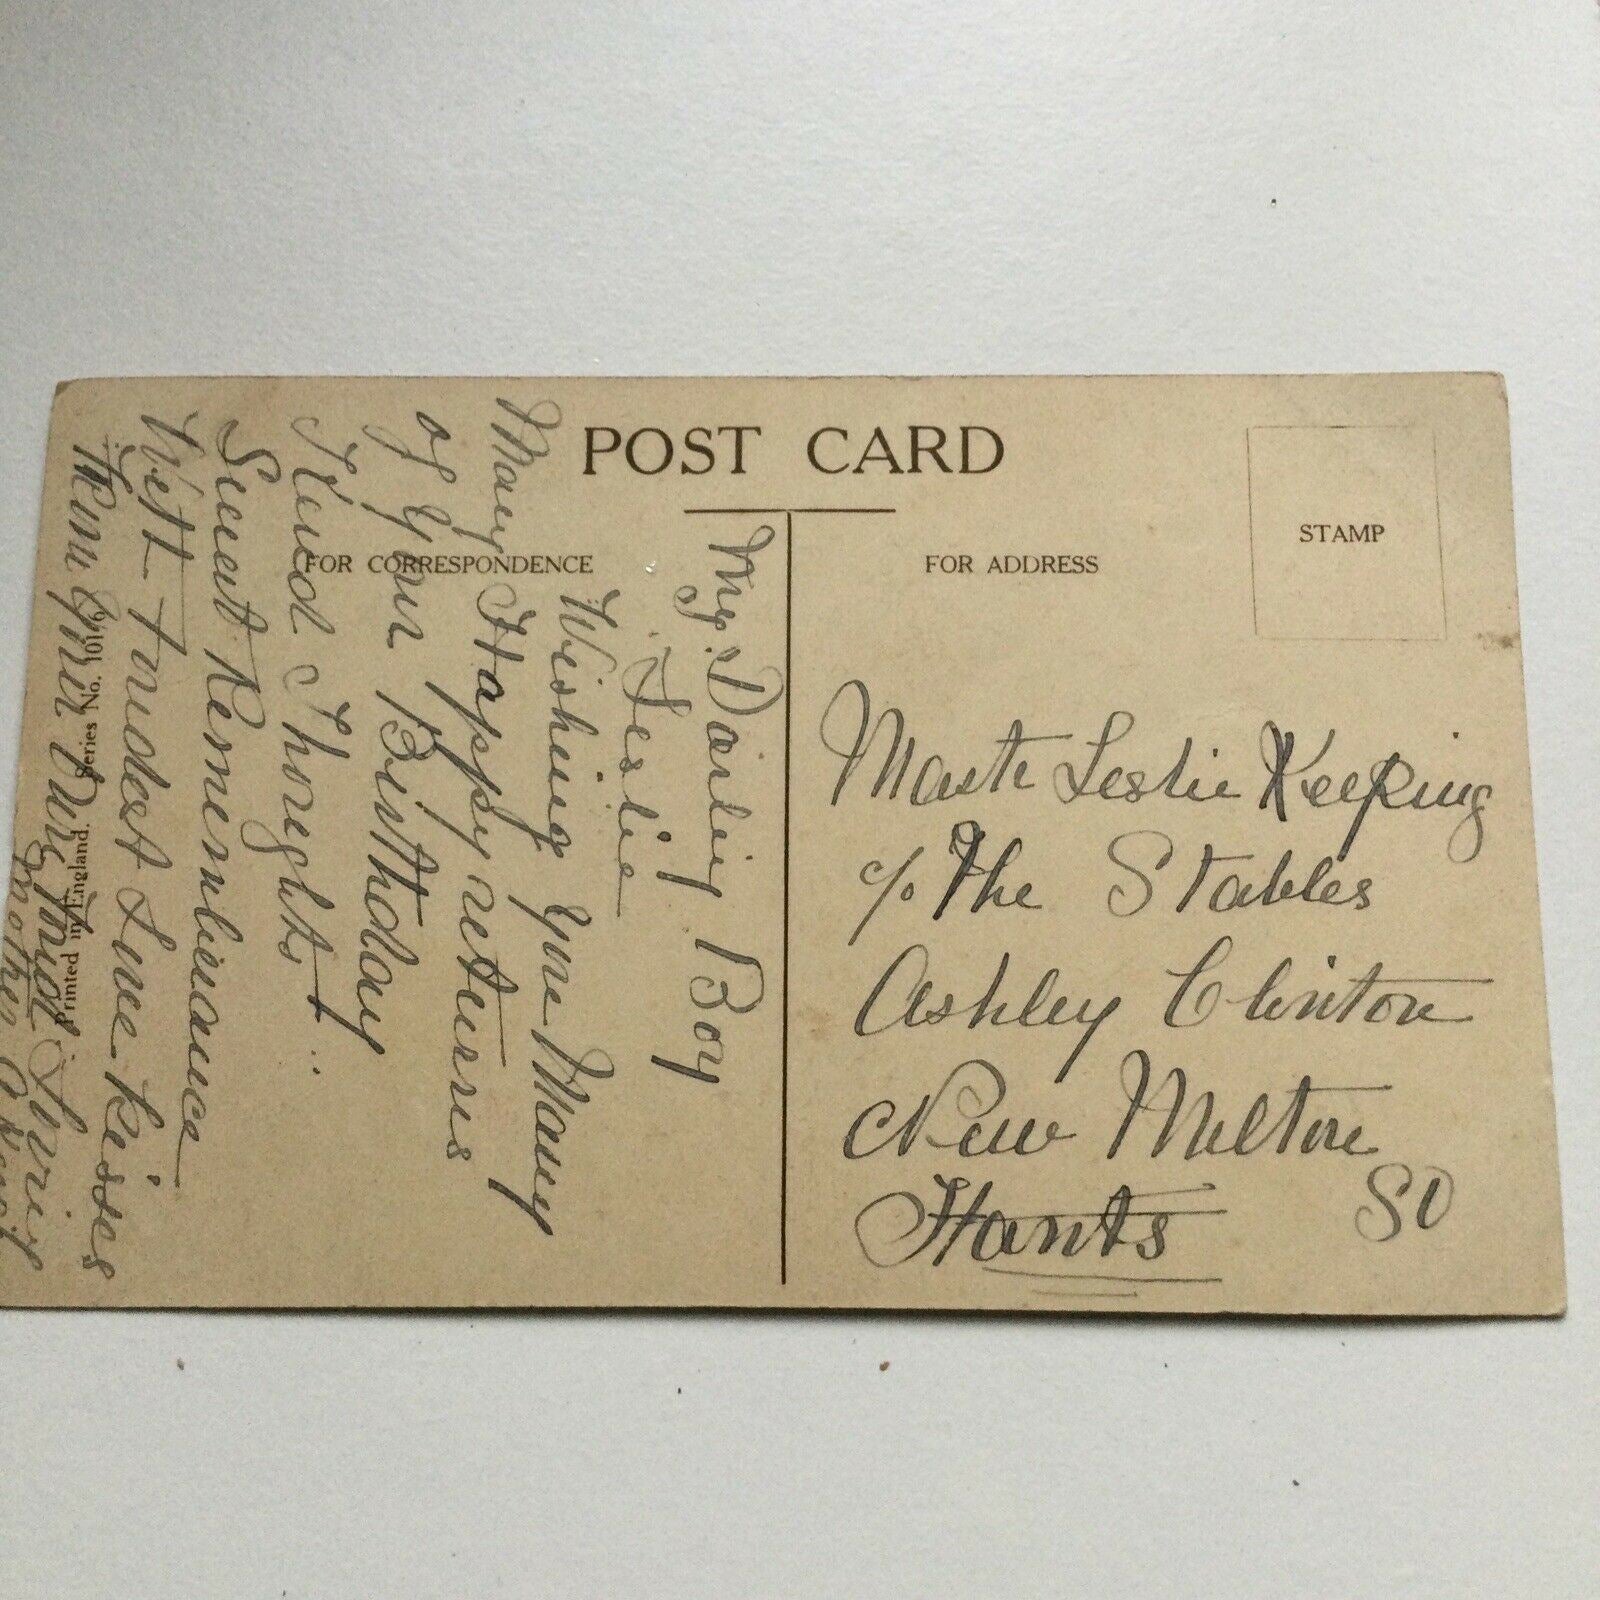 POST CARD
FOR CORRESPONDENCE
FOR ADDRESS
STAMP
My Darling Boy
Leslie
Wishing you Many
Many Happy returns
of your Birthday
Kind Thoughts
Sweet Rememberance
With Fondest Love Kisses
From your
Fond Loving
Mother
Printed in England. Series No. 1019
Maste Leslie Keeping
c/o The Stables
Ashley Clinton
New Milton
Hants
SO